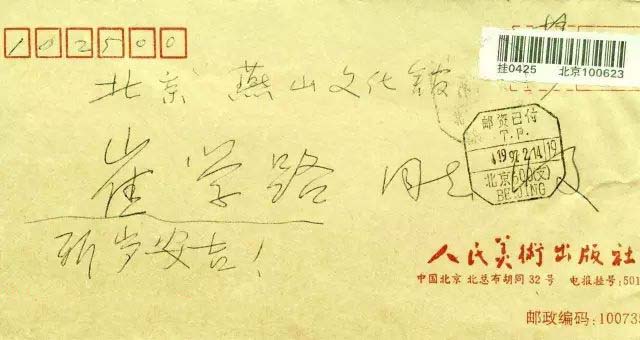 102500
挂0425 北京100623
北京燕山文化馆
邮资已付
T.P.
北京
BEIJING
崔学路 同志 收
新岁安吉！
人民美術出版社
中国北京 北总布胡同 32 号 电报挂号：501
邮政编码：10073